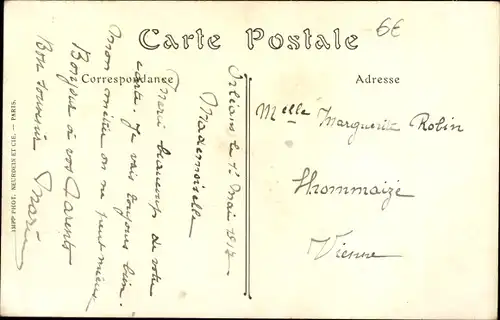 Carte Postale
6€
Correspondance
Adresse
Orléans le 1er Mai 1917
Mademoiselle
Merci beaucoup de votre
carte. Je vais toujours bien.
mon métier on ne peut mieux
Bonjour à vos Parents
Bon souvenir
Marie
Melle Marguerite Robin
Lhommaizé
Vienne
IMP. PHOT. NEURDEIN ET CIE. — PARIS.